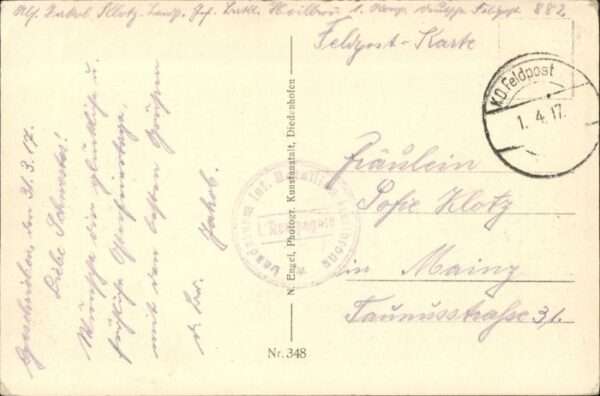 Abs. Jakob Klotz. Landst. Inf. Batl. Heilbron 1. Komp. deutsche Feldpost 882.
Feldpost-Karte
K.D. Feldpost
1. 4. 17.
Geschrieben, den 31.3.17.
Liebe Schwester!
Wünsche dir glückliche u.
fröhliche Osterfeiertage,
mit den besten Grüßen
d. Br. Jakob.
Fräulein
Sofie Klotz
in Mainz
Taunusstraße 31.
Landsturm Inf.
1. Kompagnie
N. Engel, Photogr. Kunstanstalt, Diedenhofen
Nr. 348